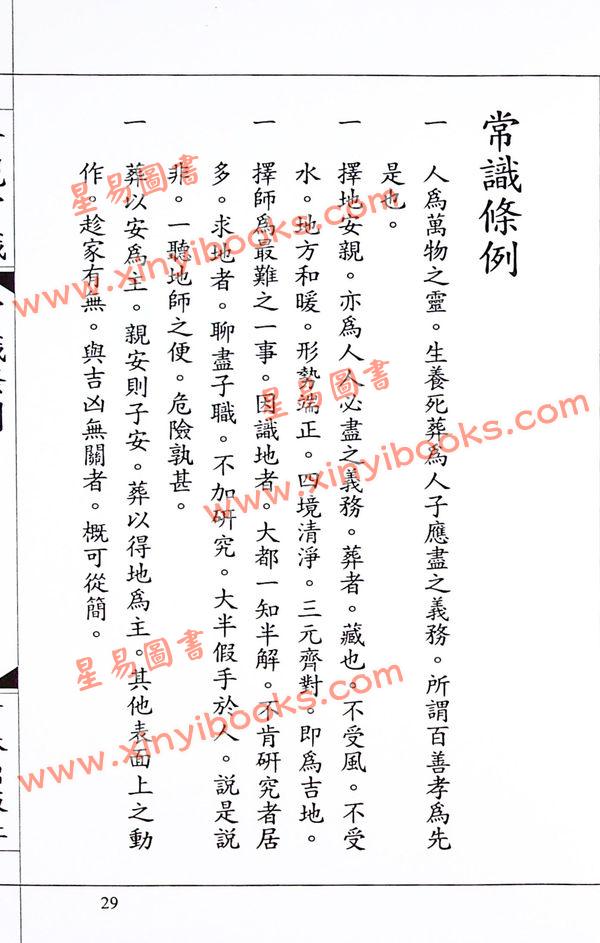 常識條例
一　人為萬物之靈。生養死葬為人子應盡之義務。所謂百善孝為先
是也。
一　擇地安親。亦為人人必盡之義務。葬者。藏也。不受風。不受
水。地方和暖。形勢端正。四境清淨。三元齊對。即為吉地。
一　擇師為最難之一事。因識地者。大都一知半解。不肯研究者居
多。求地者。聊盡子職。不加研究。大半假手於人。說是說
非。一聽地師之便。危險孰甚。
一　葬以安為主。親安則子安。葬以得地為主。其他表面上之動
作。趁家有無。與吉凶無關者。概可從簡。
29
星易圖書
www.xinyibooks.com
星易圖書
www.xinyibooks.com
星易圖書
www.xinyibooks.com